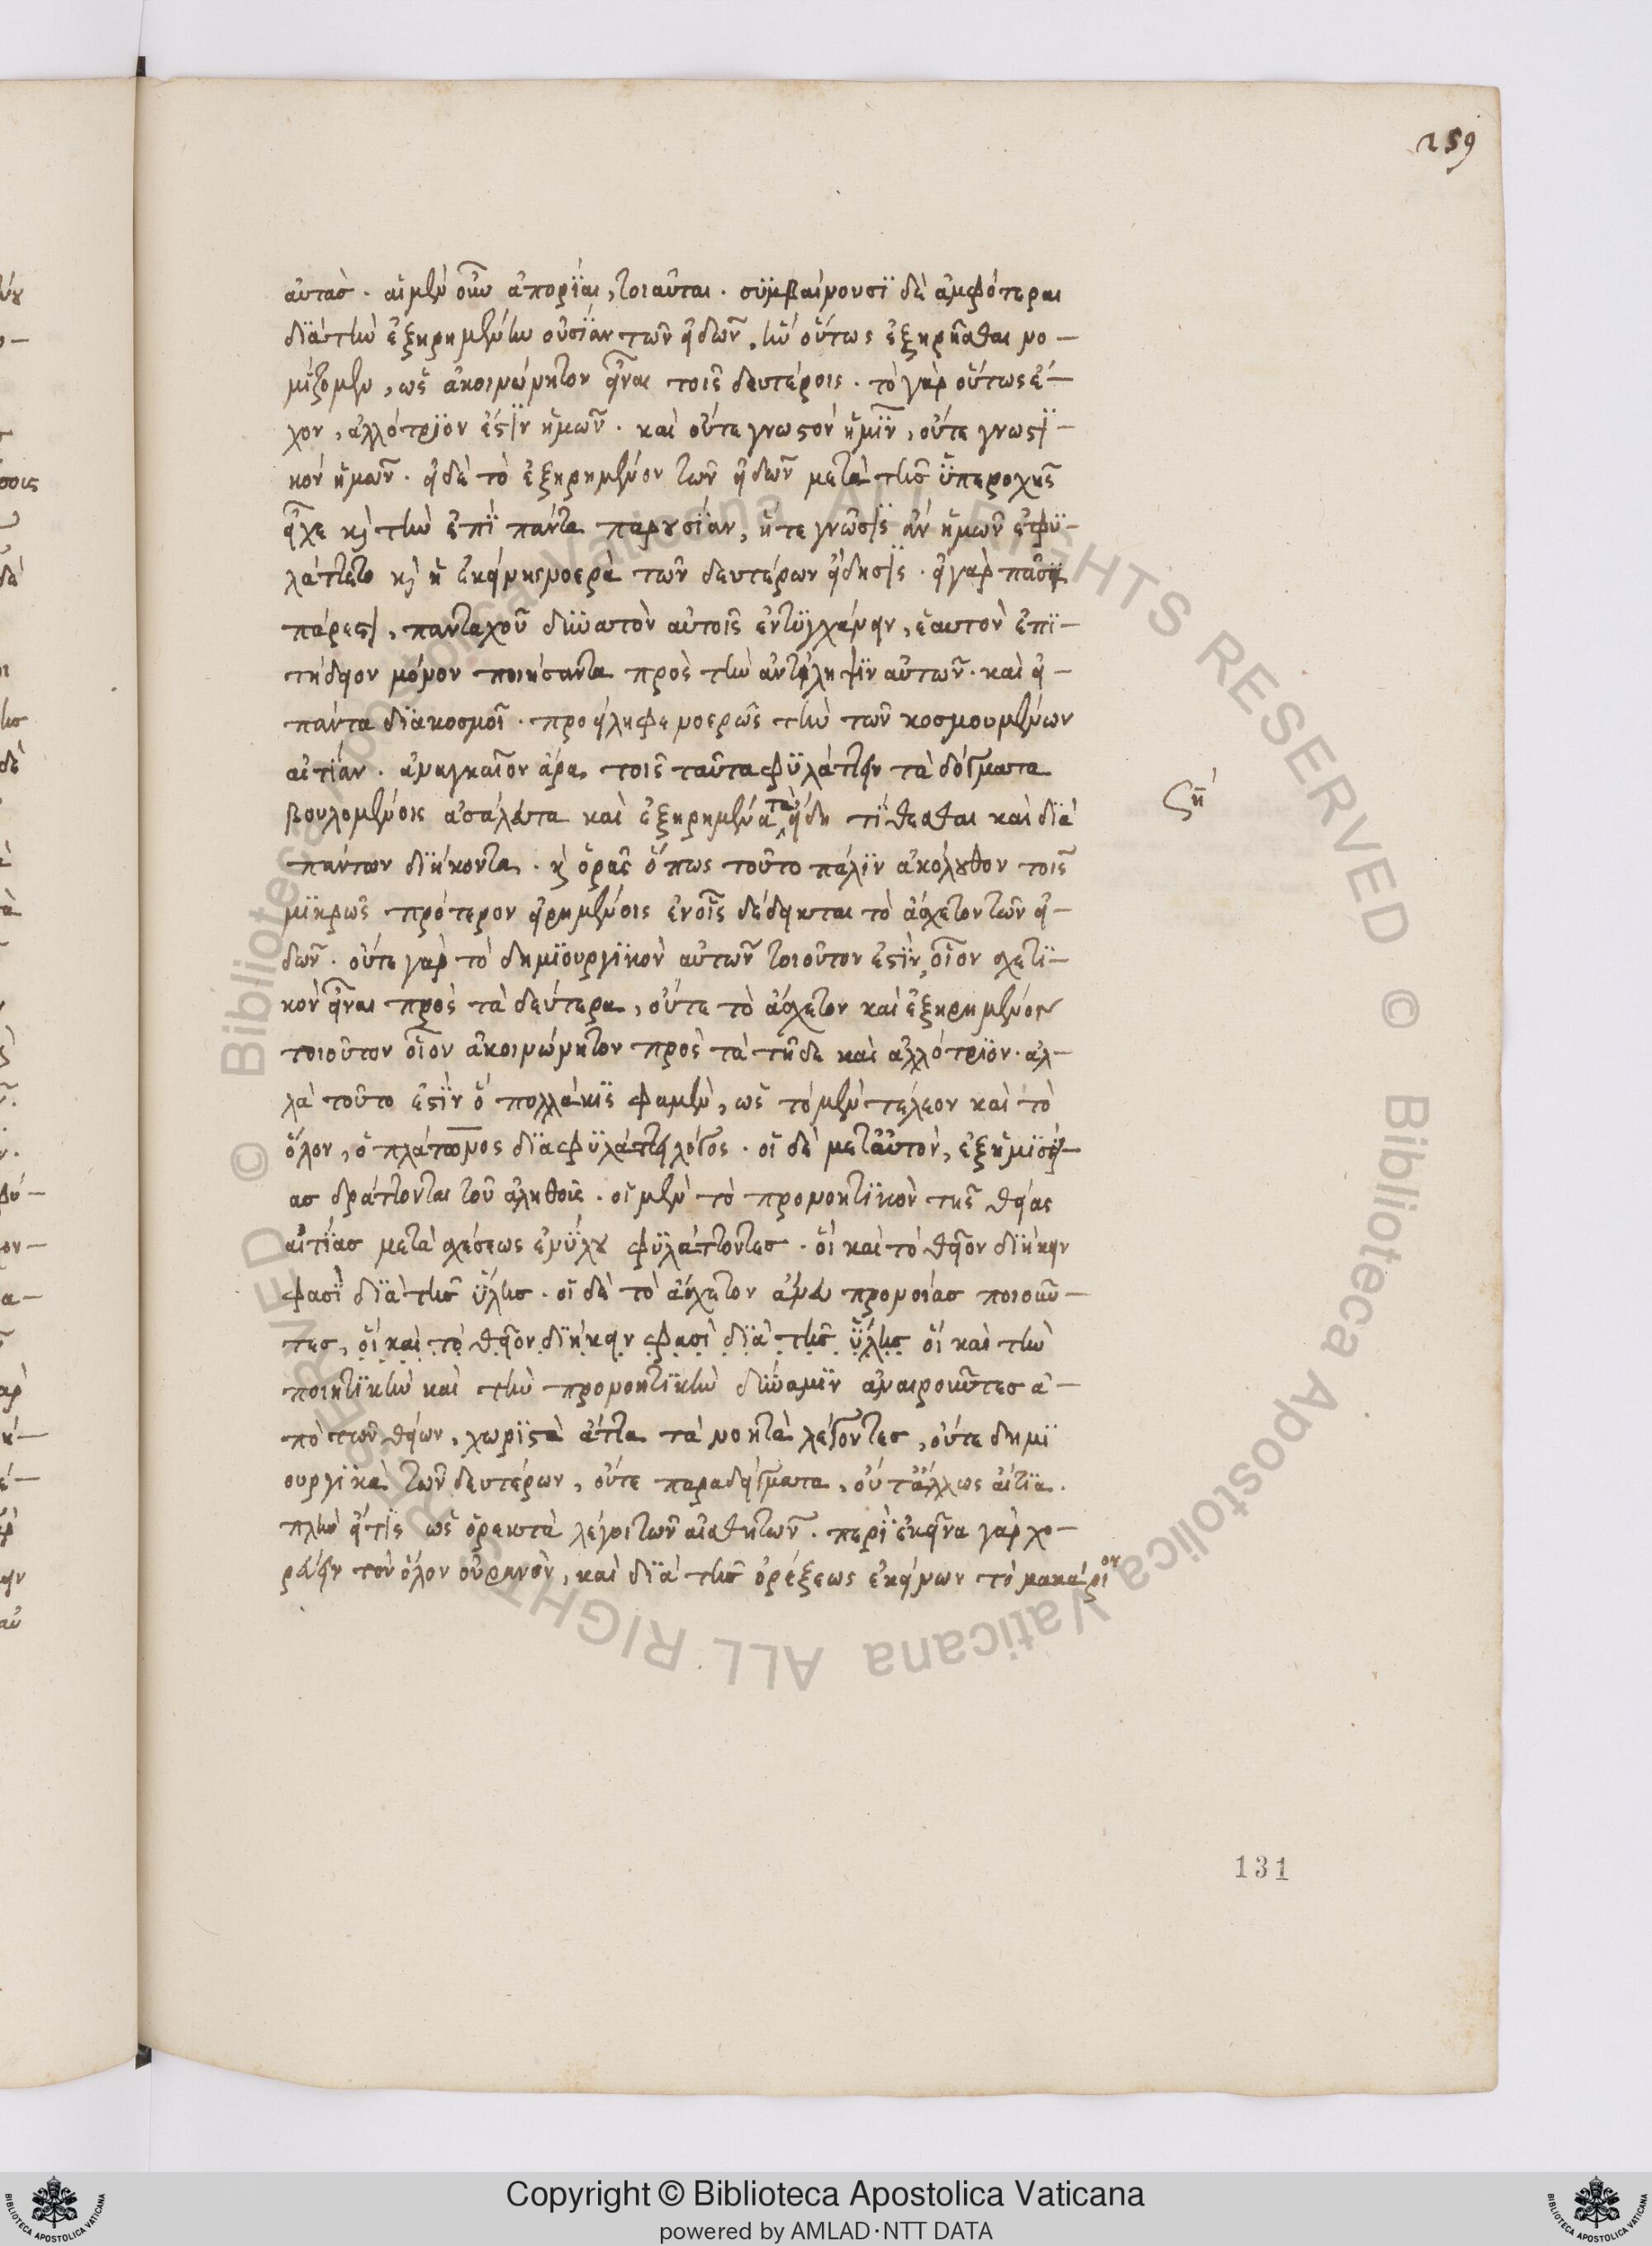 259
αὐτάσ. αἱ μὲν οὖν ἀπορίαι, τοιαῦται. συμβαίνουσϊ δὲ ἀμφότεραι
δϊὰ τὴν ἐξηρημένην οὐσίαν τῶν εἰδῶν, ἣν οὕτως ἐξηρῆσθαι νο-
μίζομεν, ὡς ἀκοινώνητον εἶναι τοῖς δευτέροις. τὸ γὰρ οὕτως ἔ-
χον, ἀλλότριον ἐστὶν ἡμῶν. καὶ οὔτε γνωστὸν ἡμῖν, οὔτε γνωστι-
κὸν ἡμῶν. εἰ δὲ τὸ ἐξηρημένον τῶν εἰδῶν μετὰ τῆς ὑπεροχῆς
εἶχε κ τὴν ἐπὶ πάντα παρουσίαν, ἥ τε γνῶσις ἂν ἡμῶν ἐφυ-
λάττετο κ ἡ ἐκείνης νοερὰ τῶν δευτέρων εἴδησις. εἰ γὰρ πᾶσι
πάρεστι, πανταχοῦ δυνατὸν αὐτοῖς ἐντυγχάνειν, ἑαυτὸν ἐπι-
τήδειον μόνον ποιήσαντα πρὸς τὴν ἀντίληψιν αὐτῶν. καὶ εἰ
πάντα διακοσμοῖ. προείληφε νοερῶς τὴν τῶν κοσμουμένων
αἰτίαν. ἀναγκαῖον ἄρα τοῖς ταῦτα φυλάττειν τὰ δόγματα
βουλομένοις ἀσάλευτα καὶ ἐξηρημένα τὰ εἴδη τίθεσθαι καὶ δϊὰ
πάντων διήκοντα. κ ὁρᾷς ὅπως τοῦτο πάλιν ἀκόλουθον τοῖς
μικρῶς πρότερον εἰρημένοις ἐν οἷς δέδεικται τὸ ἄσχετον τῶν εἰ-
δῶν. οὔτε γὰρ τὸ δημιουργικὸν αὐτῶν τοιοῦτον ἐστὶν, οἷον σχετι-
κὸν εἶναι πρὸς τὰ δεύτερα, οὔτε τὸ ἄσχετον καὶ ἐξηρημένον
τοιοῦτον οἷον ἀκοινώνητον πρὸς τὰ τῇδε καὶ ἀλλότριον. ἀλ-
λὰ τοῦτο ἐστὶν ὃ πολλάκις φαμὲν, ὡς τὸ μὲν τέλεον καὶ τὸ
ὅλον, ὁ πλάτωνος διαφυλάττει λόγος. οἱ δὲ μετ' αὐτὸν, ἐξ ἡμισεί-
ασ δράττονται τοῦ ἀληθοῦς. οἱ μὲν τὸ προνοητικὸν τῆς θείας
αἰτίας μετὰ σχέσεως ἐνύλου φυλάττοντεσ. οἳ καὶ τὸ θεῖον διήκειν
φασὶ διὰ τῆς ὕλησ. οἱ δὲ τὸ ἄσχετον ἄνευ προνοίασ ποιοῦν-
τεσ, οἳ καὶ τὸ θεῖον διήκειν φασὶ διὰ τῆς ὕλησ οἳ καὶ τὴν
ποιητικὴν καὶ τὴν προνοητικὴν δύναμιν ἀναιροῦντεσ ἀ-
πὸ τῶν θείων, χωριστὰ ἄττα τὰ νοητὰ λέγοντεσ, οὔτε δημι
ουργικὰ τῶν δευτέρων, οὔτε παραδείγματα, οὔτ' ἄλλως αἴτια.
πλὴν εἴ τις ὡς ὀρεκτὰ λέγοι τῶν αἰσθητῶν. περὶ ἐκεῖνα γὰρ χο-
ρεύειν τὸν ὅλον οὐρανὸν, καὶ διὰ τῆς ὀρέξεως ἐκείνων τὸ μακάριον
131
Copyright © Biblioteca Apostolica Vaticana
powered by AMLAD·NTT DATA